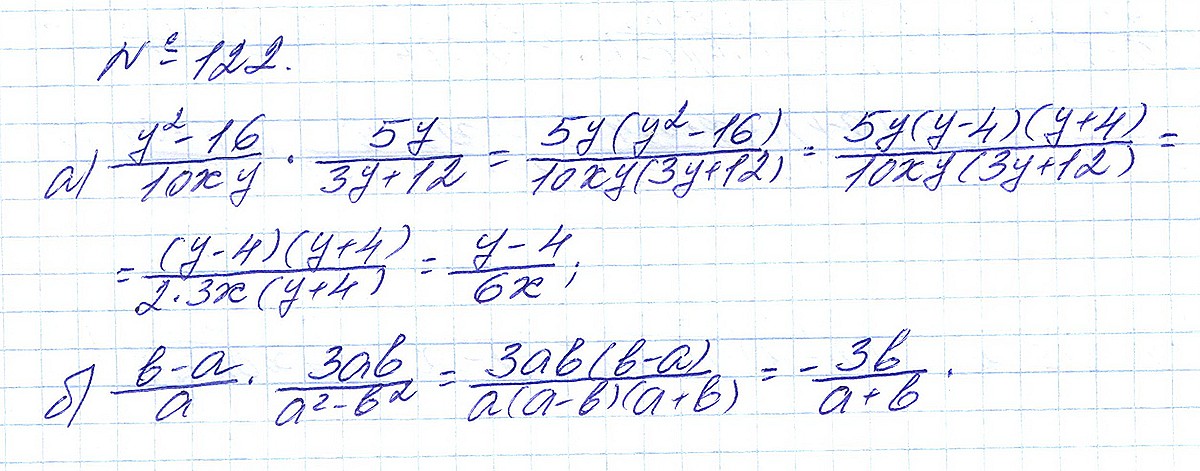 № 122.
а) (y² - 16)/(10xy) · 5y/(3y+12) = 5y(y² - 16)/(10xy(3y+12)) = 5y(y-4)(y+4)/(10xy(3y+12)) =
= (y-4)(y+4)/(2·3x(y+4)) = (y-4)/(6x);
б) (b-a)/a · 3ab/(a²-b²) = 3ab(b-a)/(a(a-b)(a+b)) = -3b/(a+b).